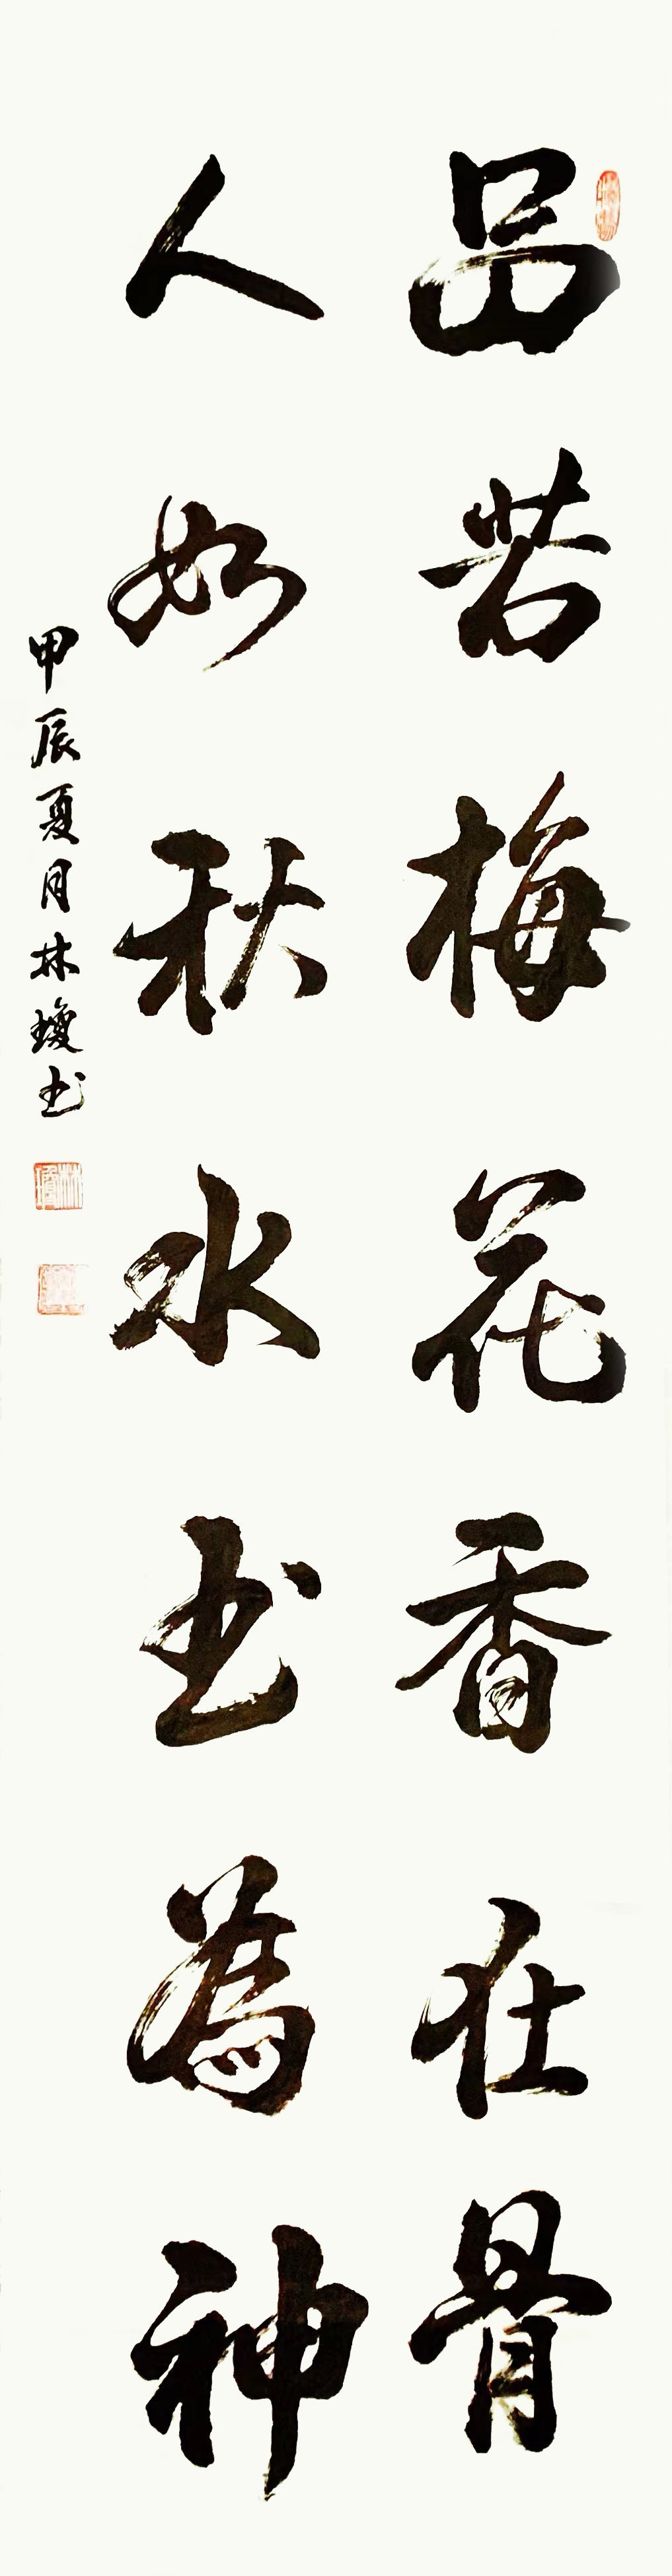 品若梅花香在骨
人如秋水书為神
甲辰夏月林瓊书